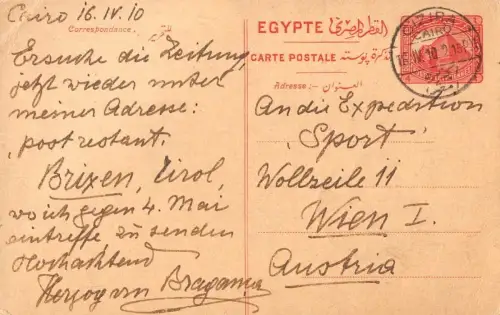 Cairo 16.IV.10
Correspondance.
Ersuche die Zeitung,
jetzt wieder unter
meiner Adresse:
„postrestant.
Brixen, Tirol,
wo ich gegen 4. Mai
eintreffe, zu senden
Hochachtend
Herzog von Braganza
EGYPTE القطر المصرى
CARTE POSTALE تذكرة بوستة
Adresse:- العنوان
CAIRO
An die Expedition
„Sport"
Wollzeile 11
Wien I.
Austria